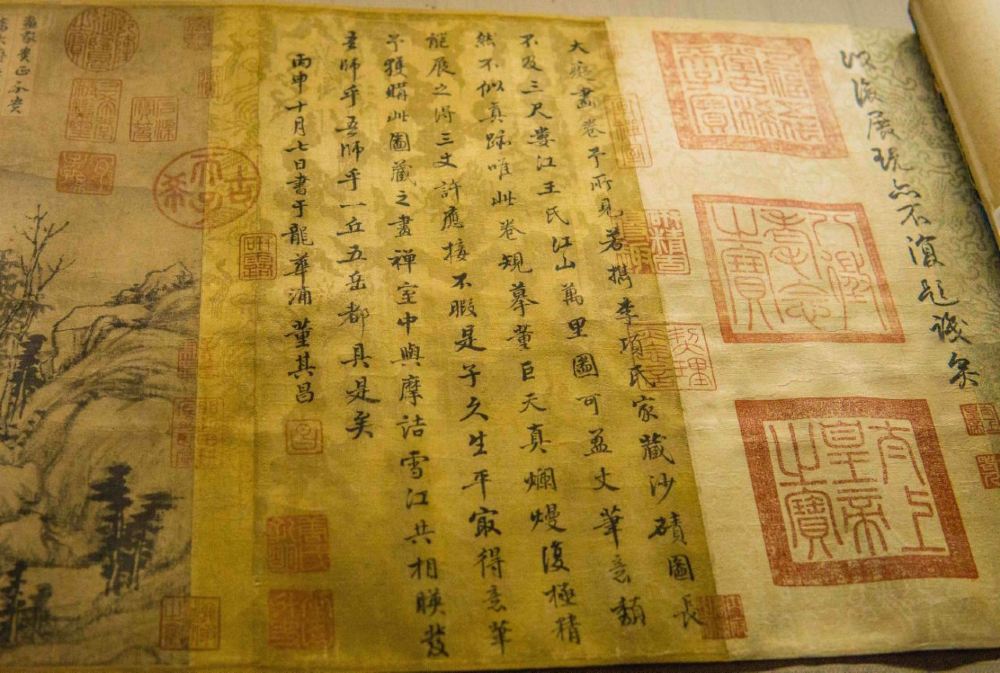 以後展玩亦不復題識矣
八徵耄念之寶
太上皇帝之寶
大癡畫卷予所見若檇李項氏家藏沙磧圖長
不及三尺婁江王氏江山萬里圖可盈丈筆意頹
然不似真跡唯此卷規摹董巨天真爛熳復極精
能展之得三丈許應接不暇是子久生平㝡得意筆
予獲購此圖藏之畫禪室中與摩詰雪江共相映發
吾師乎吾師乎一丘五岳都具是矣
丙申十月七日書于龍華浦 董其昌
古稀天子